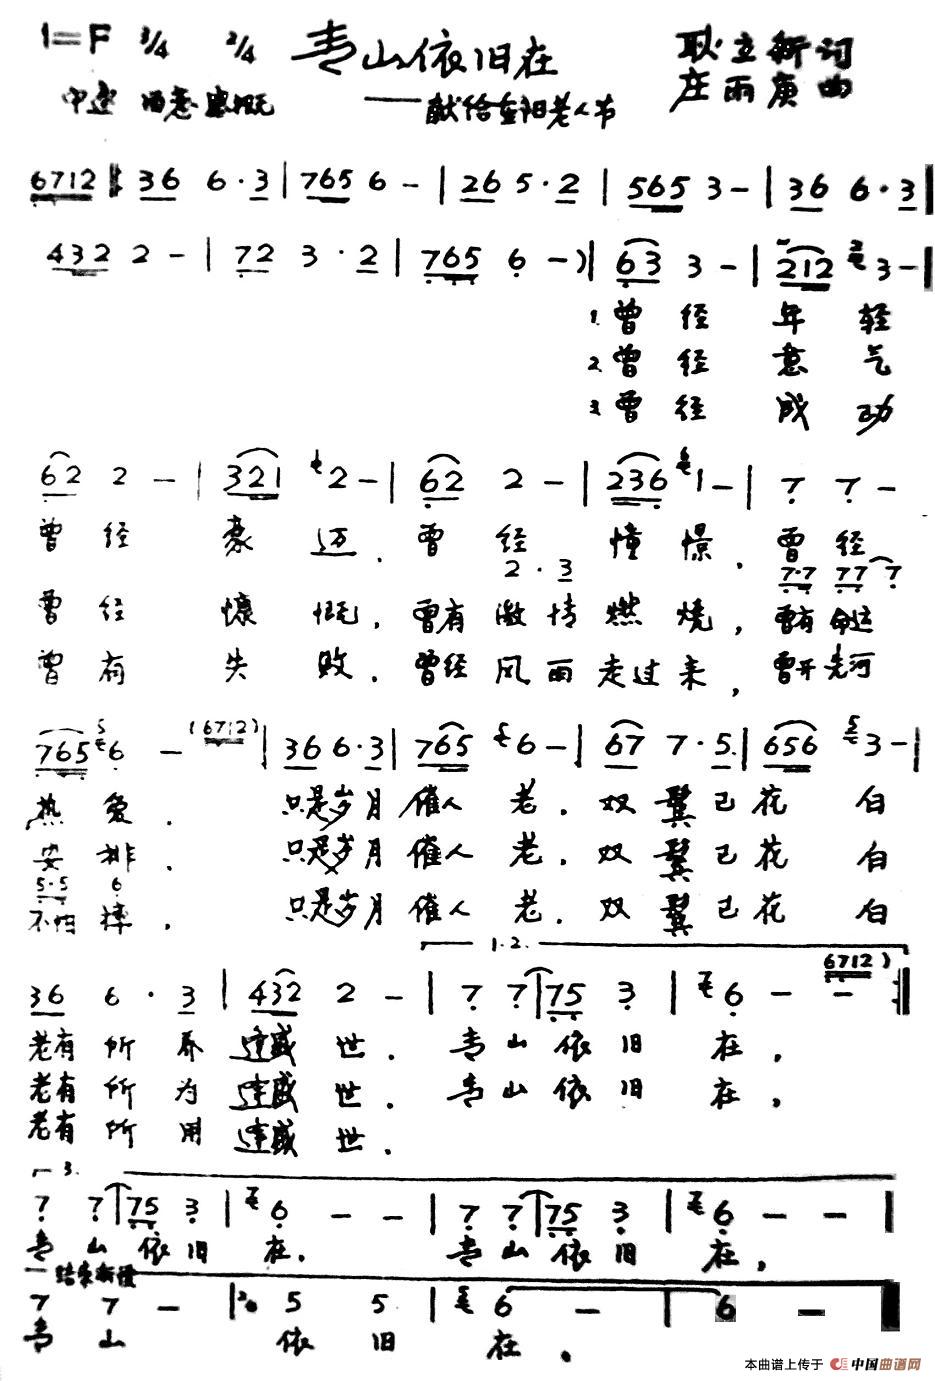 1=F 3/4 2/4 青山依旧在 耿立新词
中速 感慨 ——献给重阳老人节 庄雨庚曲
6712 ‖ 36 6·3 | 765 6 - | 26 5·2 | 565 3 - | 36 6·3 |
432 2 - | 72 3·2 | 765 6 -) | 63 3 - | 212 3 - |
1.曾经年轻
2.曾经意气
3.曾经成功
62 2 - | 321 2 - | 62 2 - | 236 1 - | 7 7 -
曾经豪迈.曾经憧憬.曾经
2·3 7·7 77 7
曾经慷慨,曾有激情燃烧,曾有命运
曾有失败.曾经风雨走过来,曾开先河
765 5 6 - (6712) | 36 6·3 | 765 6 - | 67 7·5 | 656 5 3 - |
热爱.只是岁月催人老.双鬓已花白
安排.只是岁月催人老.双鬓已花白
5·5 6
不怕摔.只是岁月催人老.双鬓已花白
1.2.
36 6·3 | 432 2 - | 7 7 | 75 3 | 6 - - 6712)
老有所养逢盛世.青山依旧在,
老有所为逢盛世.青山依旧在,
老有所用逢盛世.
3.
7 7 | 75 3 | 6 - - | 7 7 | 75 3 | 6 - - |
青山依旧在.青山依旧在,
结束渐慢
7 7 - | 2/4 5 5 | 6 - | 6 -
青山依旧在.
本曲谱上传于 中国曲谱网